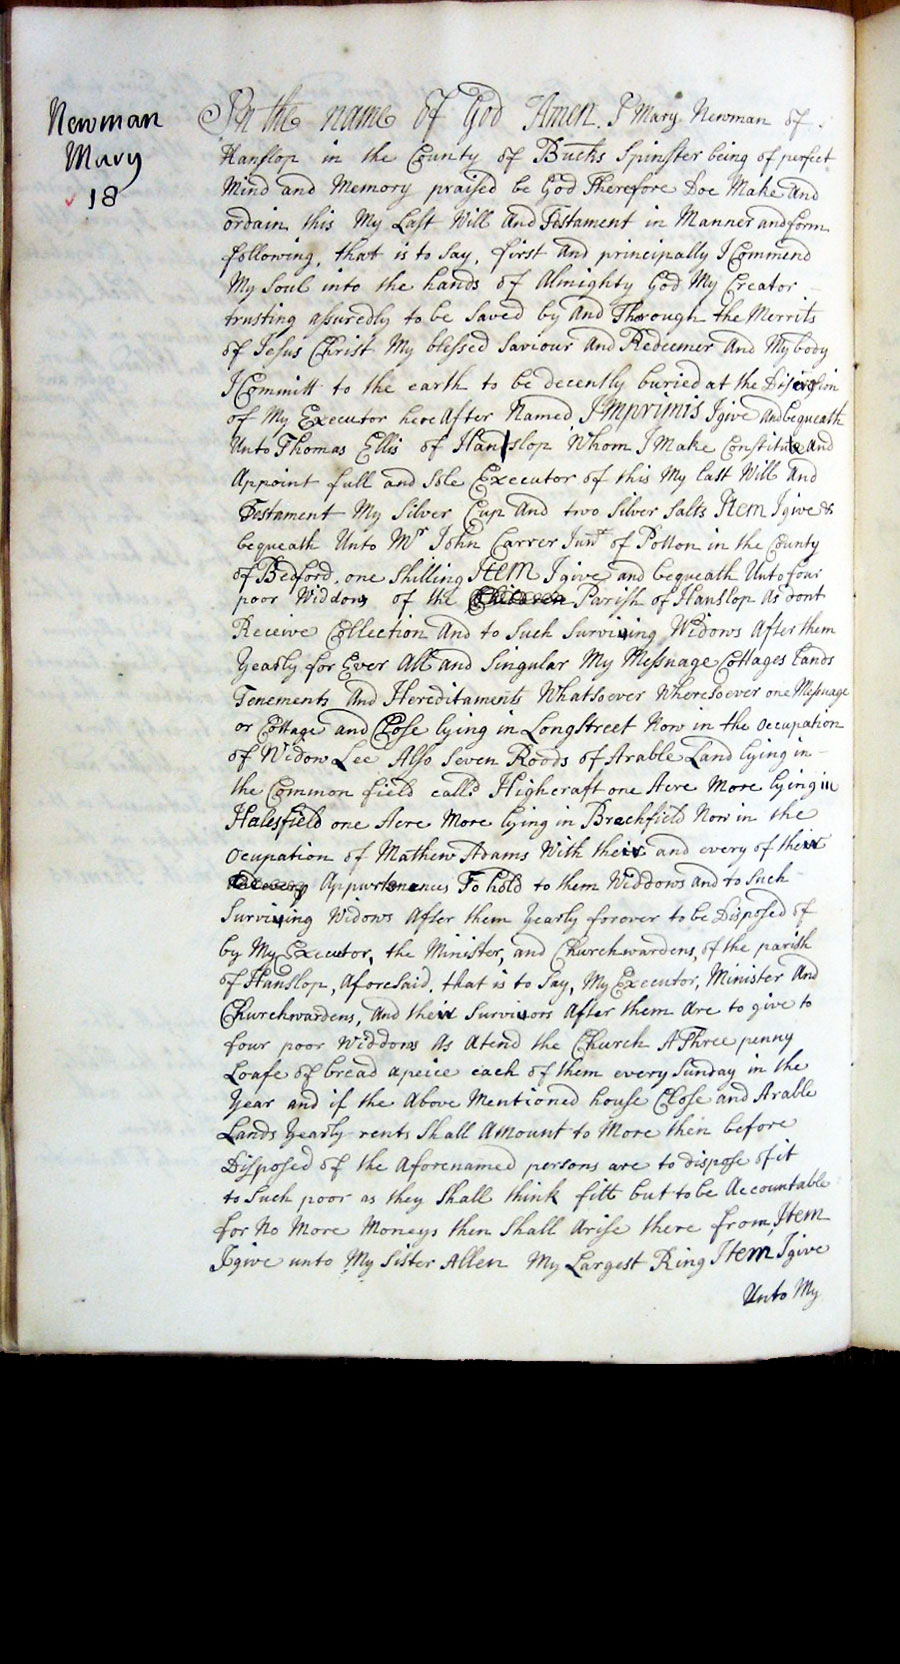 Newman
Mary
18
In the name of God Amen. I Mary Newman of
Hanslop in the County of Bucks Spinster being of perfect
Mind and Memory praised be God Therefore Doe Make And
ordain this My Last Will And Testament in Manner and form
following, that is to say, first And principally I Commend
My Soul into the hands of Almighty God My Creator
trusting assuredly to be Saved by And Thorough the Merrits
of Jesus Christ My blessed Saviour And Redeemer And My body
I Committ to the earth to be decently buried at the Discresion
of My Executor here After Named Imprimis I give And bequeath
Unto Thomas Ellis of Hanslop Whom I Make Constitute And
Appoint full and Sole Executor of this My last Will And
Testament My Silver Cup And two Silver Salts Item I give &
bequeath Unto Mr John Carrer Junr of Potton in the County
of Bedford, one Shilling Item I give and bequeath Unto four
poor Widdows of the Children Parish of Hanslop As dont
Receive Collection And to Such Surviving Widows After them
Yearly for Ever All and Singular My Messuage Cottages Lands
Tenements And Hereditaments Whatsoever Wheresoever one Messuage
or Cottage and Close lying in Longstreet Now in the Occupation
of Widow Lee Also Seven Roods of Arable Land lying in
the Common field calld Highcraft one Acre More lying in
Halesfield one Acre More lying in Brachfield Now in the
Ocupation of Mathew Adams With their and every of their
Appurtenances To hold to them Widdows and to Such
Surviving Widows After them Yearly forever to be Disposed of
by My Executor, the Minister, and Churchwardens, of the parish
of Hanslop, Aforesaid, that is to Say, My Executor, Minister And
Churchwardens, And their Survivors After them Are to give to
four poor Widdows As Atend the Church A Three penny
Loafe of bread apeice each of them every Sunday in the
Year and if the Above Mentioned house Close and Arable
Lands Yearly rents Shall Amount to More then before
Disposed of the Aforenamed persons are to dispose of it
to Such poor as they Shall think fitt but to be Accountable
for No More Moneys then Shall Arise there from, Item
I give unto My Sister Allen My Largest Ring Item I give
Unto My